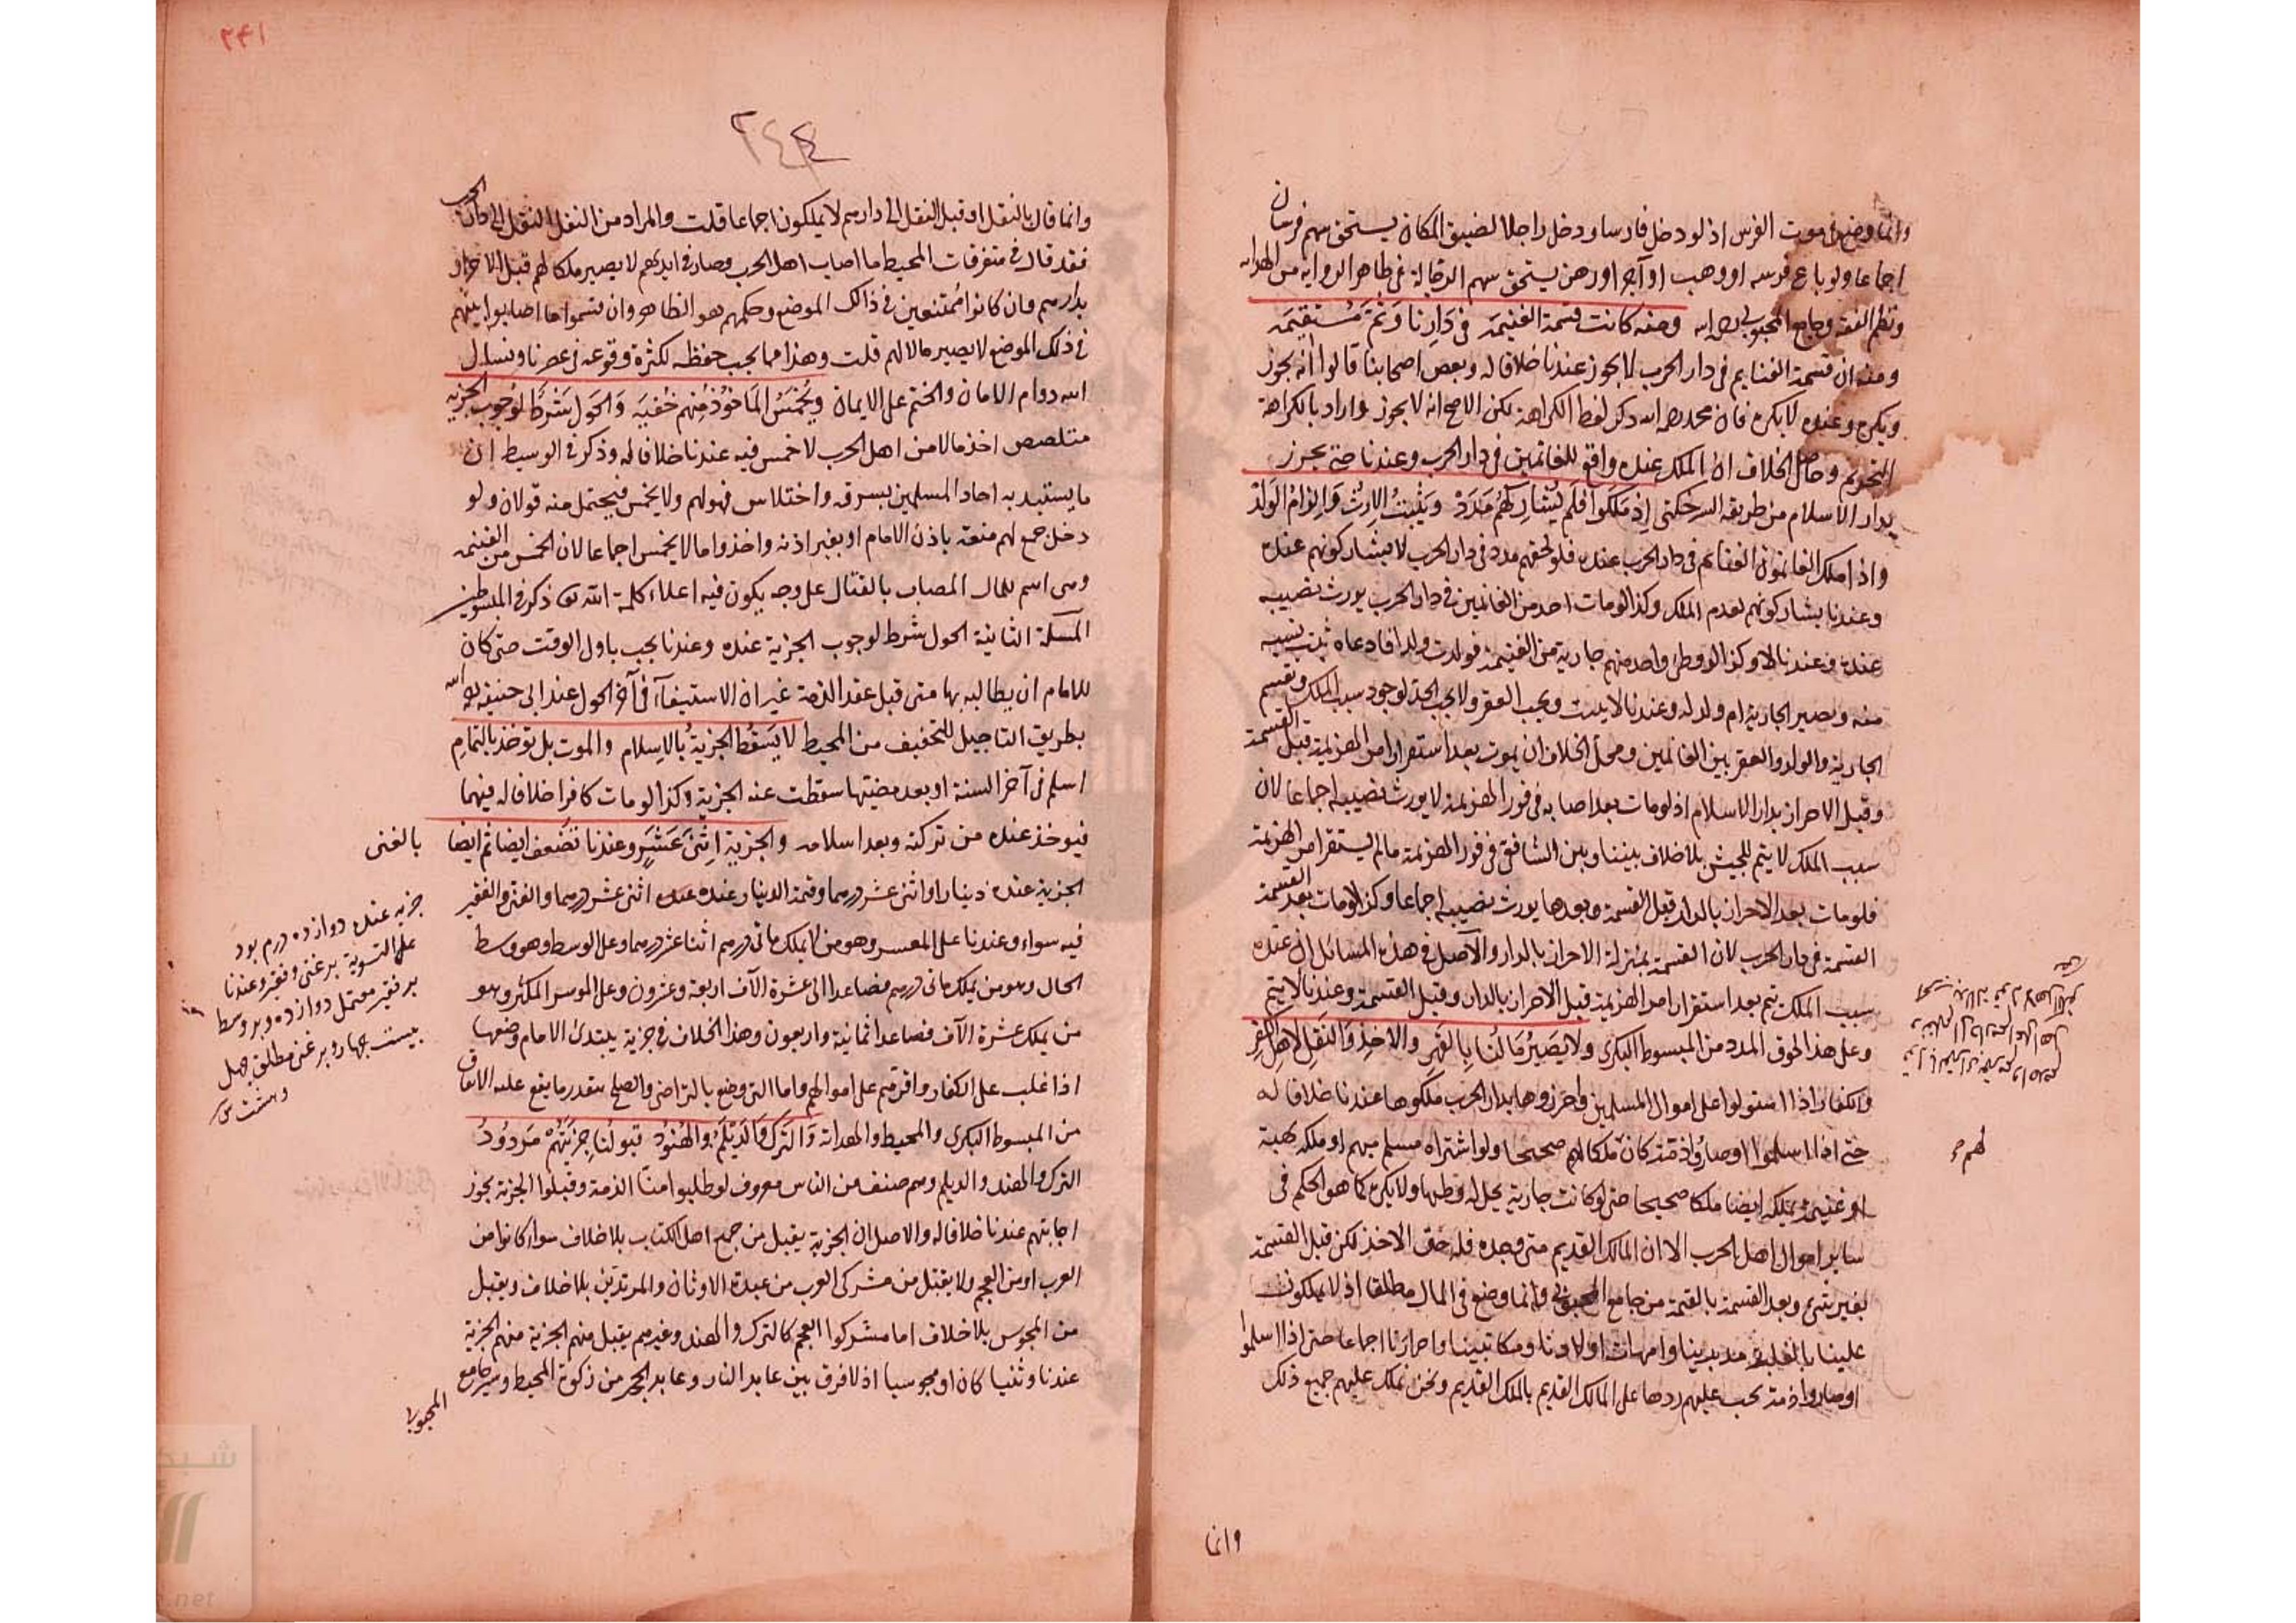 وانما وضع في موت الفرس اذ لو دخل فارسا ودخل راجلا لضيق المكان يستحق سهم فرسان
اجماعا ولو باع فرسه او وهب او آجر او رهن يستحق سهم الرجالة في ظاهر الرواية من الهداية
ونظم الفقه وجامع المحبوبي رحمه الله وصفه كانت قسمة الغنيمة في دارنا وثم مستقيمة
ومنه ان قسمة الغنايم في دار الحرب لا يجوز عندنا خلافا له وبعض اصحابنا قالوا انه يجوز
ويكره وعنده لا يكره فان محمد رحمه الله ذكر لفظ الكراهة لكن الاصح انه لا يجوز واراد بالكراهة
التحريم وحاصل الخلاف ان الملك عنده واقع للغانمين في دار الحرب وعندنا حتى يحرز
بدار الاسلام من طريقة السرخكتي اذ ملكوا فلم يشاركهم مدد ويثبت الارث والزام الولد
واذا ملك الغانمون الغنائم في دار الحرب عنده فلو لحقهم مدد في دار الحرب لا يشاركونهم عنده
وعندنا يشاركونهم لعدم الملك وكذا لو مات احد من الغانمين في دار الحرب يورث نصيبه
عنده وعندنا لا وكذا لو وطئ واحد منهم جارية من الغنيمة فولدت ولدا فادعاه ثبت نسبه
منه ويصير الجارية ام ولد له وعندنا لا يثبت ويجب العقر ولا يجب الحد لوجود سبب الملك ويقسم
الجارية والولد والعقر بين الغانمين ومحل الخلاف ان يموت بعد استقرار امر الهزيمة قبل القسمة
وقبل الاحراز بدار الاسلام اذ لو مات بعد اصابه في فور الهزيمة لا يورث نصيبه اجماعا لان
سبب الملك لا يتم للجيش بلا خلاف بيننا وبين الشافعي في فور الهزيمة ما لم يستقر امر الهزيمة
فلو مات بعد الاحراز بالدار قبل القسمة وبعدها يورث نصيبه اجماعا وكذا لو مات بعد القسمة
القسمة في دار الحرب لان القسمة بمنزلة الاحراز بالدار والاصل في هذه المسائل ان عنده
سبب الملك تم بعد استقرار امر الهزيمة قبل الاحراز بالدار وقبل القسمة وعندنا لا يتم
وعلى هذا لحوق المدد من المبسوط البكري ولا يصير مالنا بالقهر والاخذ والنقل لاهل الكفر
والكفار اذا استولوا على اموال المسلمين واحرزوها بدار الحرب ملكوها عندنا خلافا له
حتى اذا اسلموا او صاروا ذمة كان ملكا لهم صحيحا ولو اشتراه مسلم منهم او ملكه بهبة
او غنيمة يملكه ايضا ملكا صحيحا حتى لو كانت جارية يحل له وطيها ولا يكره كما هو الحكم في
ساير اموال اهل الحرب الا ان المالك القديم متى وجده فله حق الاخذ لكن قبل القسمة
بغير شيء وبعد القسمة بالقيمة من جامع المحبوبي وانما وضع في المال مطلقا اذ لا يملكون
علينا بالغلبة مدبرينا وامهات اولادنا ومكاتبينا واحرارنا اجماعا حتى اذا اسلموا
او صاروا ذمة يجب عليهم ردها على المالك القديم بالملك القديم ونحن نملك عليهم جميع ذلك
لهم
وانما
٢٤١
٢٤٤
وانما قال بالنقل اذ قبل النقل الى دارهم لا يملكون اجماعا قلت والمراد من النقل النقل الى دار الحرب
فقد قال في متفرقات المحيط ما اصاب اهل الحرب وصار في ايديهم لا يصير ملكا لهم قبل الاحراز
بدارهم وان كانوا ممتنعين في ذالك الموضع وحكمهم هو الظاهر وان قسموا ما اصابوا بينهم
في ذلك الموضع لا يصير مالا لهم قلت وهذا مما يجب حفظه لكثرة وقوعه في عصرنا ونسال
الله دوام الامان والختم على الايمان ويخمس الماخوذ منهم خفية والحول شرط لوجوب الجزية
متلصص اخذ مالا من اهل الحرب لا خمس فيه عندنا خلافا له وذكر في الوسيط ان
ما يستبد به احاد المسلمين بسرقة واختلاس فهو لهم ولا يخمس فيحتمل منه قولان ولو
دخل جمع لهم منعة باذن الامام او بغير اذنه واخذوا مالا يخمس اجماعا لان الخمس من الغنيمة
وهي اسم للمال المصاب بالقتال على وجه يكون فيه اعلاء كلمة الله تعالى ذكر في المبسوطين
المسئلة الثانية الحول شرط لوجوب الجزية عنده وعندنا يجب باول الوقت حتى كان
للامام ان يطالبه بها متى قبل عقد الذمة غير ان الاستيفاء في آخر الحول عند ابي حنيفة رحمه الله
بطريق التاجيل للتخفيف من المحيط لا يسقط الجزية بالاسلام والموت بل يؤخذ بالتمام
اسلم في آخر السنة او بعد مضيتها سقطت عنه الجزية وكذا لو مات كافرا خلافا له فيهما
فيوخذ عنده من تركته وبعد اسلامه والجزية اثنى عشر وعندنا تضعف ايضا ثم ايضا بالغنى
الجزية عنده دينار او اثنى عشر درهما وقيمة الدينار عنده اثنى عشر درهما والغني والفقير
فيه سواء وعندنا على المعسر وهو من لا يملك مائتي درهم اثنا عشر درهما وعلى الوسط وهو وسط
الحال وهو من يملك مائتي درهم فصاعدا الى عشرة الآف اربعة وعشرون وعلى الموسر المكثر وهو
من يملك عشرة الآف فصاعدا ثمانية واربعون وهذا الخلاف في جزية يبتدئ الامام وضعها
اذا غلب على الكفار واقرهم على اموالهم واما التي وضع بالتراضي والصلح يتقدر ما يقع عليه الاتفاق
من المبسوط البكري والمحيط والهداية والترك والديلم والهنود قبولنا جزيتهم مردود
الترك والهند والديلم وهم صنف من الناس معروف لو طلبوا منا الذمة وقبلوا الجزية يجوز
اجابتهم عندنا خلافا له والاصل ان الجزية يقبل من جميع اهل الكتاب بلا خلاف سواء كانوا من
العرب او من العجم ولا يقبل من مشركي العرب من عبدة الاوثان والمرتدين بلا خلاف ويقبل
من المجوس بلا خلاف اما مشركوا العجم كالترك والهند وغيرهم يقبل منهم الجزية منهم الجزية
عندنا وثنيا كان او مجوسيا اذ لا فرق بين عابد النار وعابد الحجر من زكوة المحيط وسير جامع
المحبوبي
جزيه عنده دوازده درم بود
على التسوية بر غني وفقير وعندنا
بر فقير معتمل دوازده وبر وسط
بيست چهار وبر غني مطلق چهل
وهشت